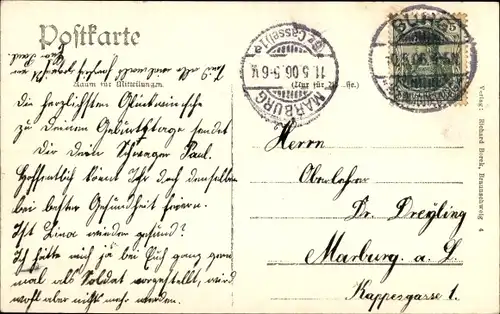 Postkarte
Raum für Mitteilungen.
Die herzlichsten Glückwünsche
zu Deinem Geburtstage sendet
Dir Dein Schwager Paul.
Hoffentlich könnt Ihr doch denselben
bei bester Gesundheit feiern.
Ist Lina wieder gesund?
Ich hätte mich ja bei Euch ganz gern
mal als Soldat vorgestellt, wird
wohl aber nichts mehr werden.
MARBURG
(Bz. Cassel)
11.5.06. 5-6 V.
BURG
Herrn
Oberlehrer
Dr. Dreyling
Marburg. a. L.
Kappesgasse 1.
Verlag: Richard Borek, Braunschweig 4